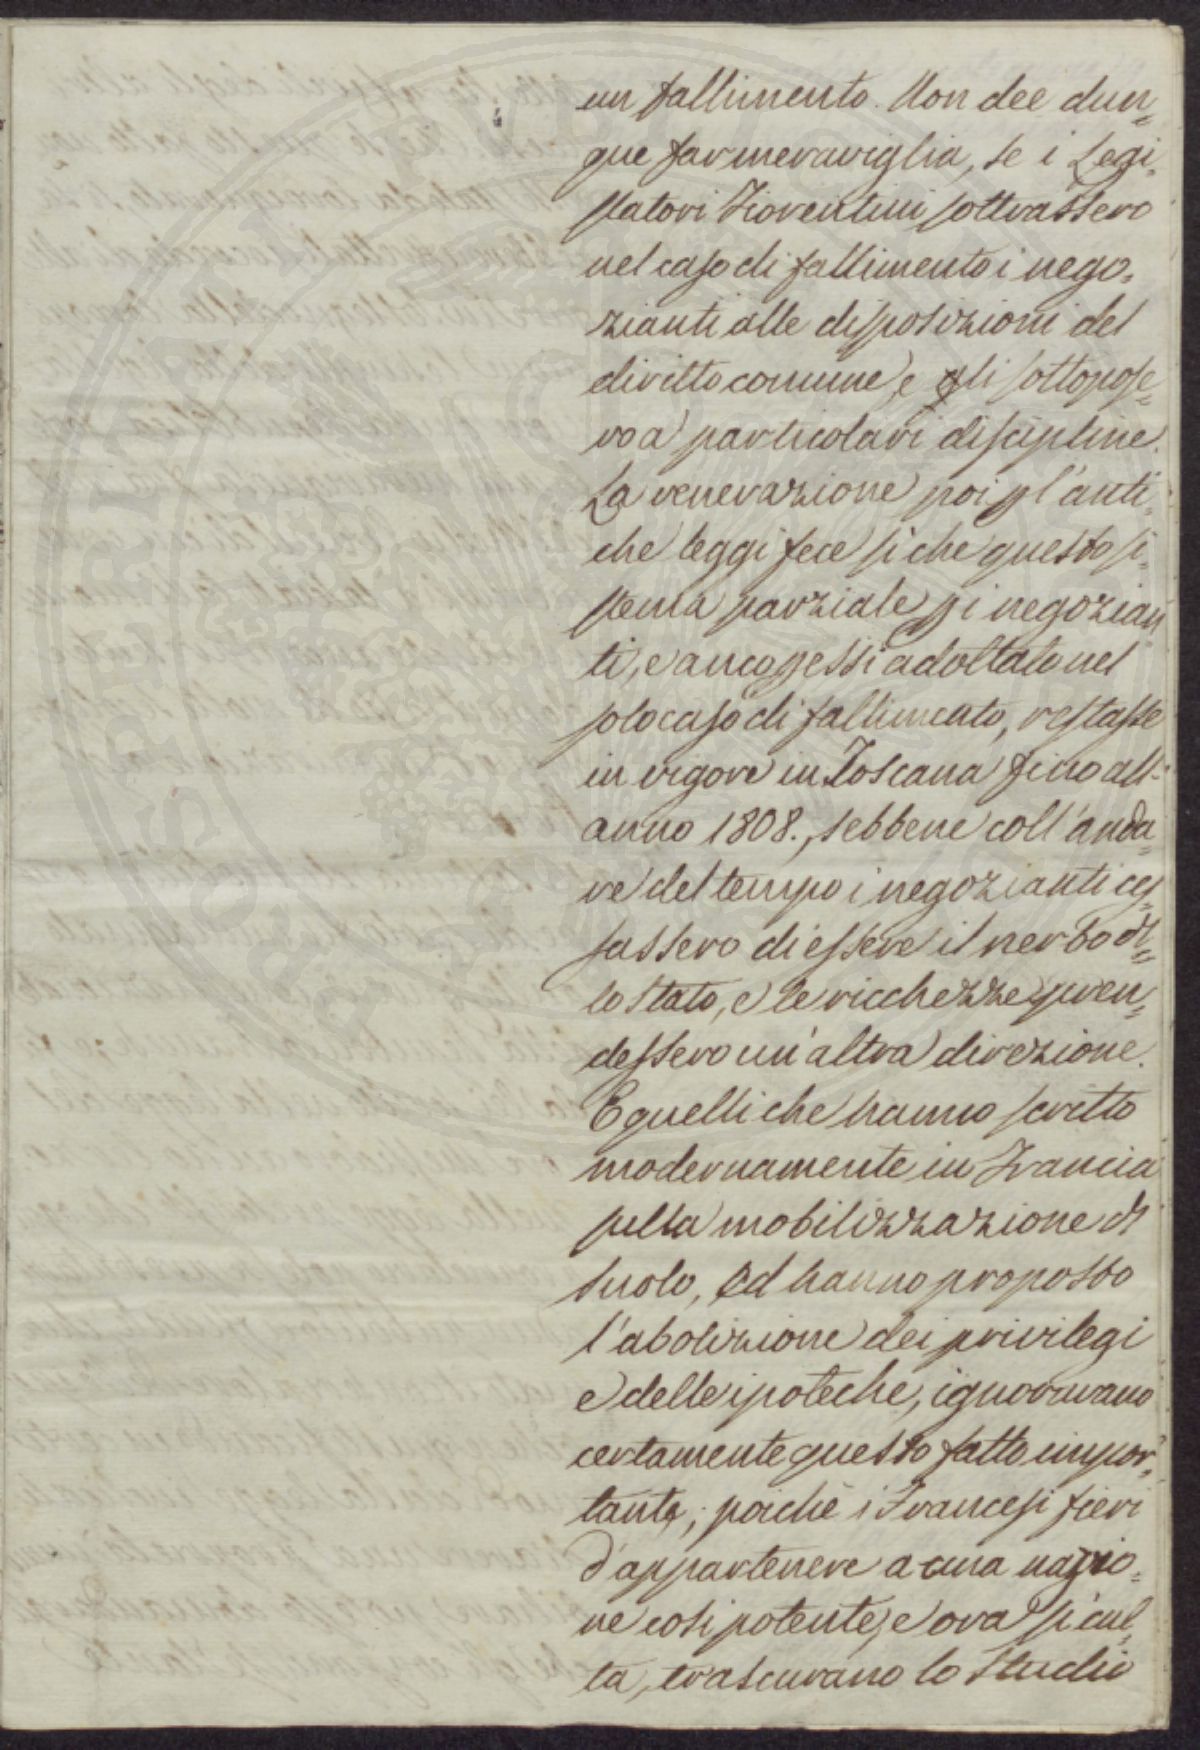 un fallimento. Non dee dun=
que far meraviglia, se i Legi=
slatori Fiorentini sottrassero
nel caso di fallimento i nego=
zianti alle disposizioni del
diritto comune, e gli sottopose=
ro a particolari discipline.
La venerazione poi p l'anti=
che leggi fece sì che questo si=
stema parziale p i negozian
ti, e anco p essi adottato nel
solo caso di fallimento, restasse
in vigore in Toscana fino all'
anno 1808., sebbene coll'anda=
re del tempo i negozianti ces=
sassero di essere il nerbo del=
lo Stato, e le ricchezze pren=
dessero un'altra direzione.
E quelli che hanno scritto
modernamente in Francia
sulla mobilizzazione del
suolo, ed hanno proposto
l'abolizione dei privilegi
e delle ipoteche, ignoravano
certamente questo fatto impor=
tante; poichè i Francesi fieri
d'appartenere a una nazio=
ne così potente, e ora sì cul=
ta, trascurano lo studio